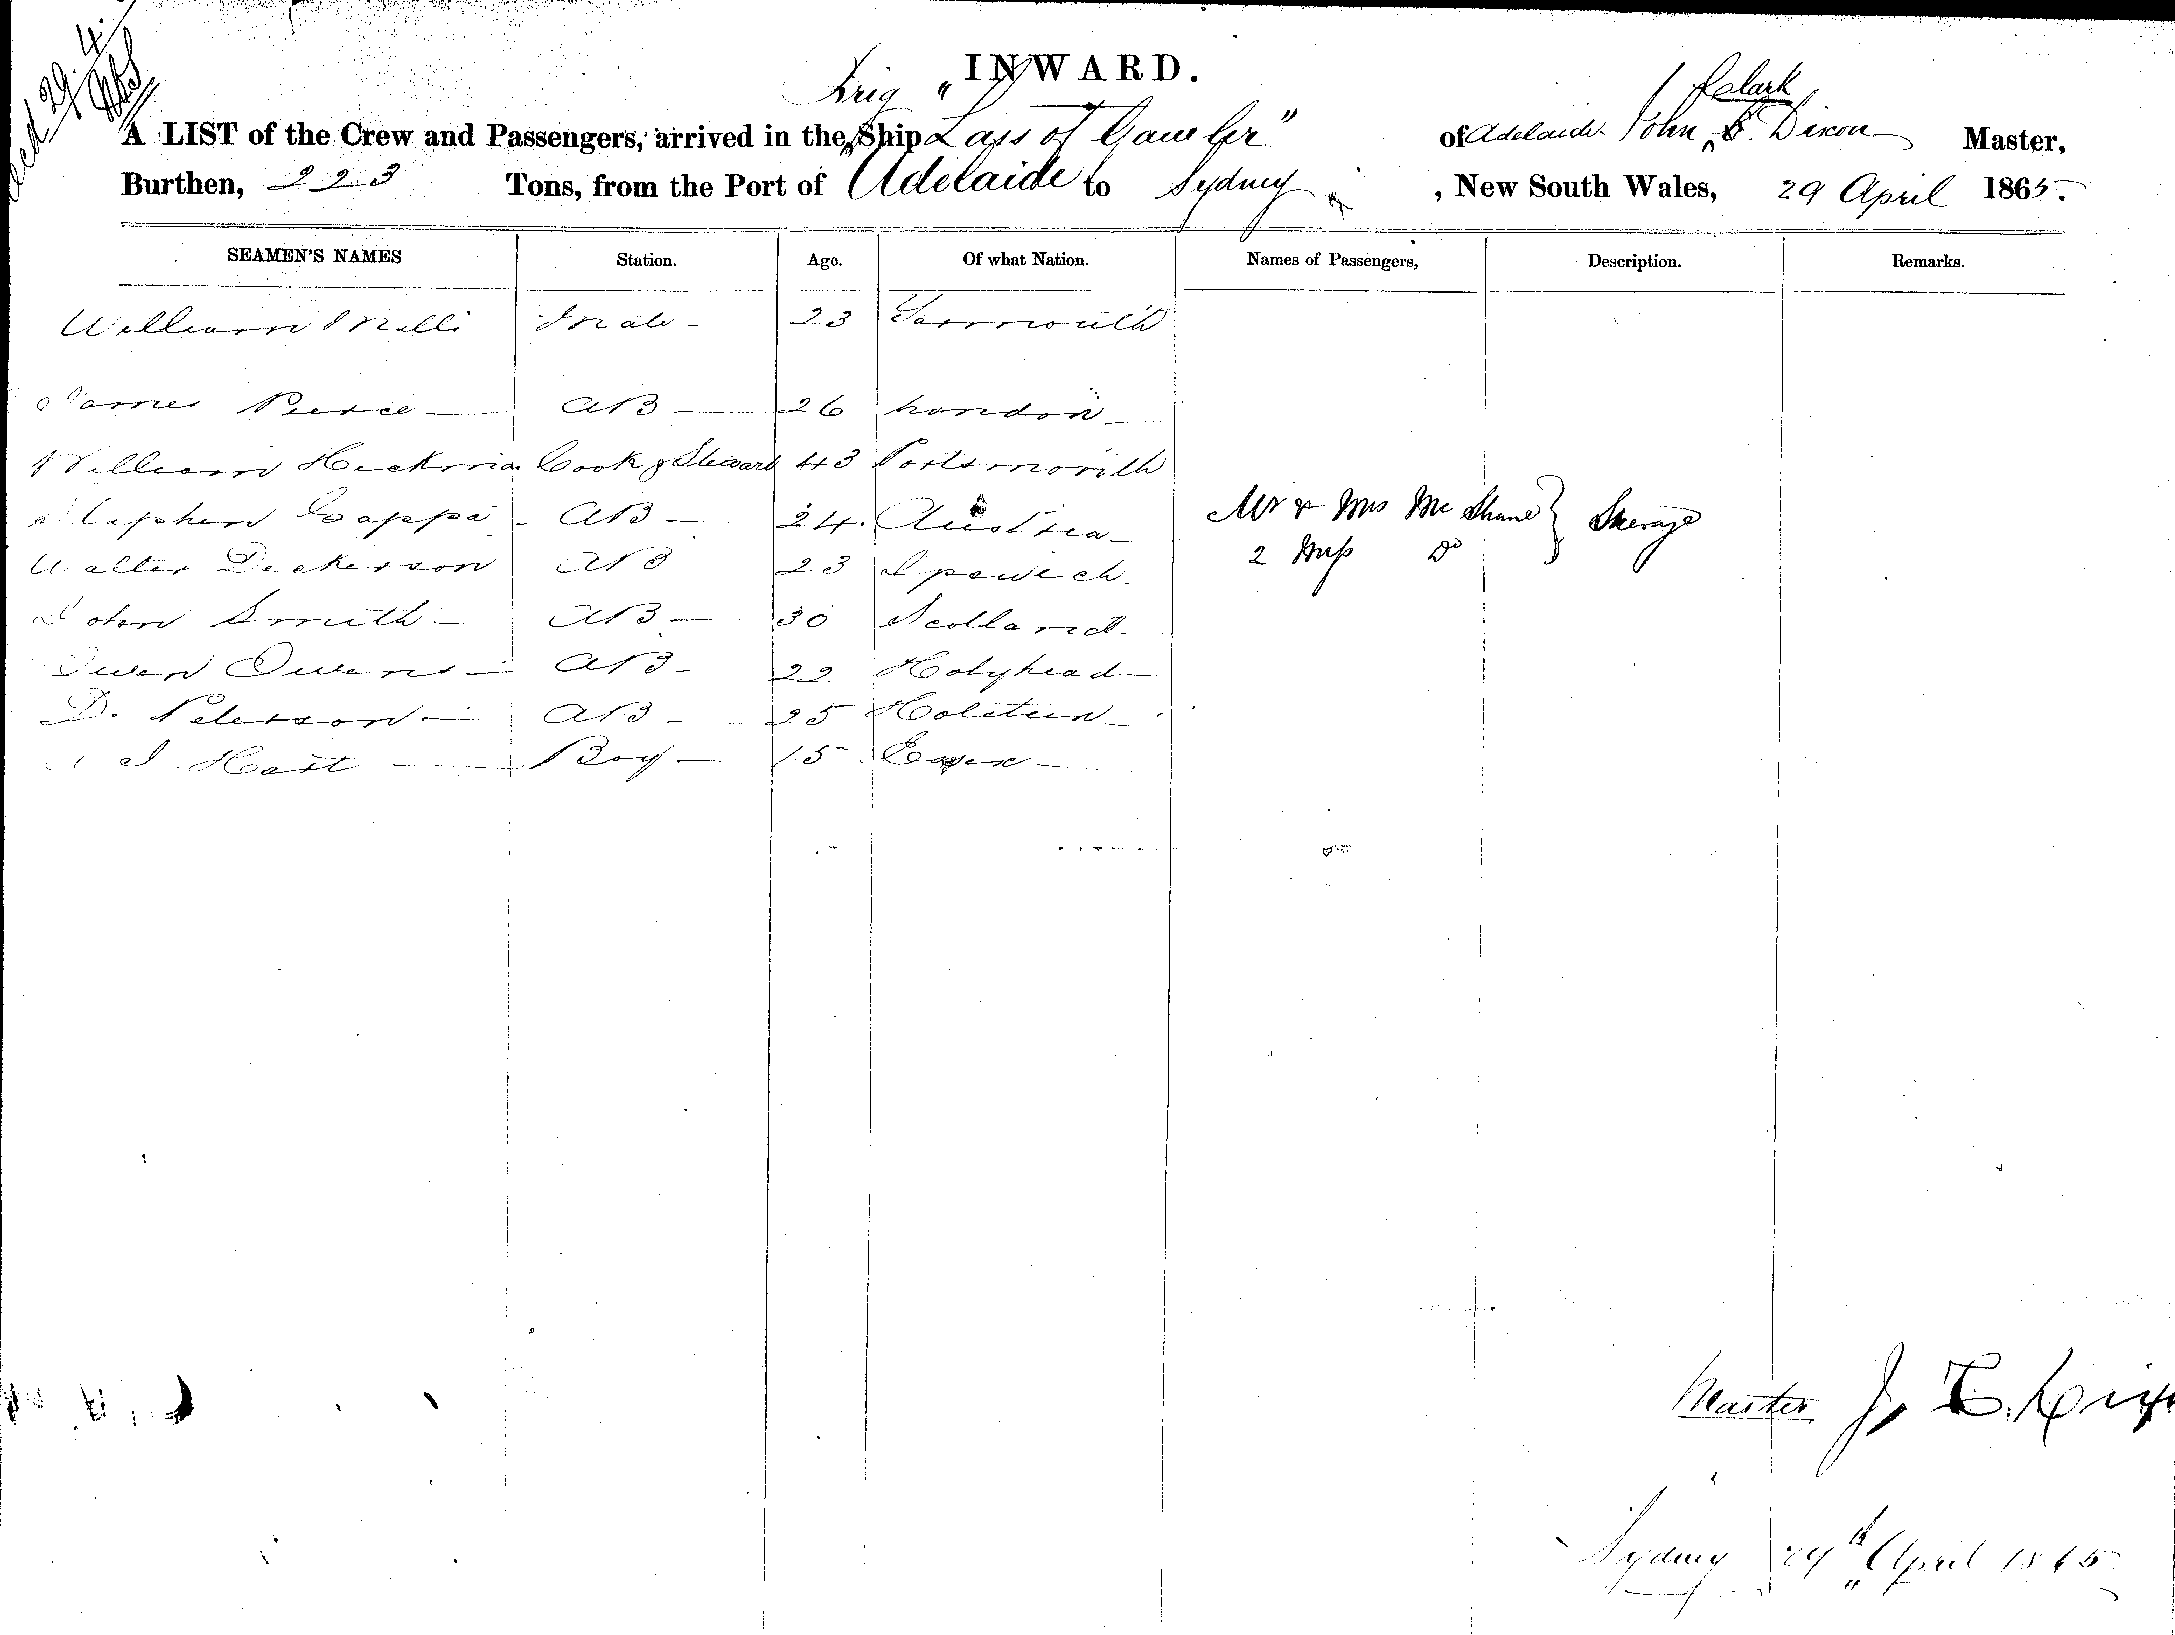 INWARD.
Brig "
Clark
A LIST of the Crew and Passengers, arrived in the Ship Lass of Gawler" of Adelaide John C. Dixon Master,
Burthen, 223 Tons, from the Port of Adelaide to Sydney, New South Wales, 29 April 1865.
SEAMEN'S NAMES Station. Age. Of what Nation. Names of Passengers, Description. Remarks.
William Mills Mate - 23 Yarmouth
James Pierce - AB - 26 London -
William Hickman Cook & Steward 43 Portsmouth
Stephen - AB - 24. Austria -
Mr & Mrs McShane } Steerage
Walter Dickerson AB 23 Ipswich.
2 Miss Do
John Smith - AB - 30 Scotland -
Owen Owens - AB - 22 Holyhead -
D. Peterson - AB - 25 Holstein -
J Hart - Boy - 15 Essex -
Master J. C. Dix
Sydney 29th April 1865